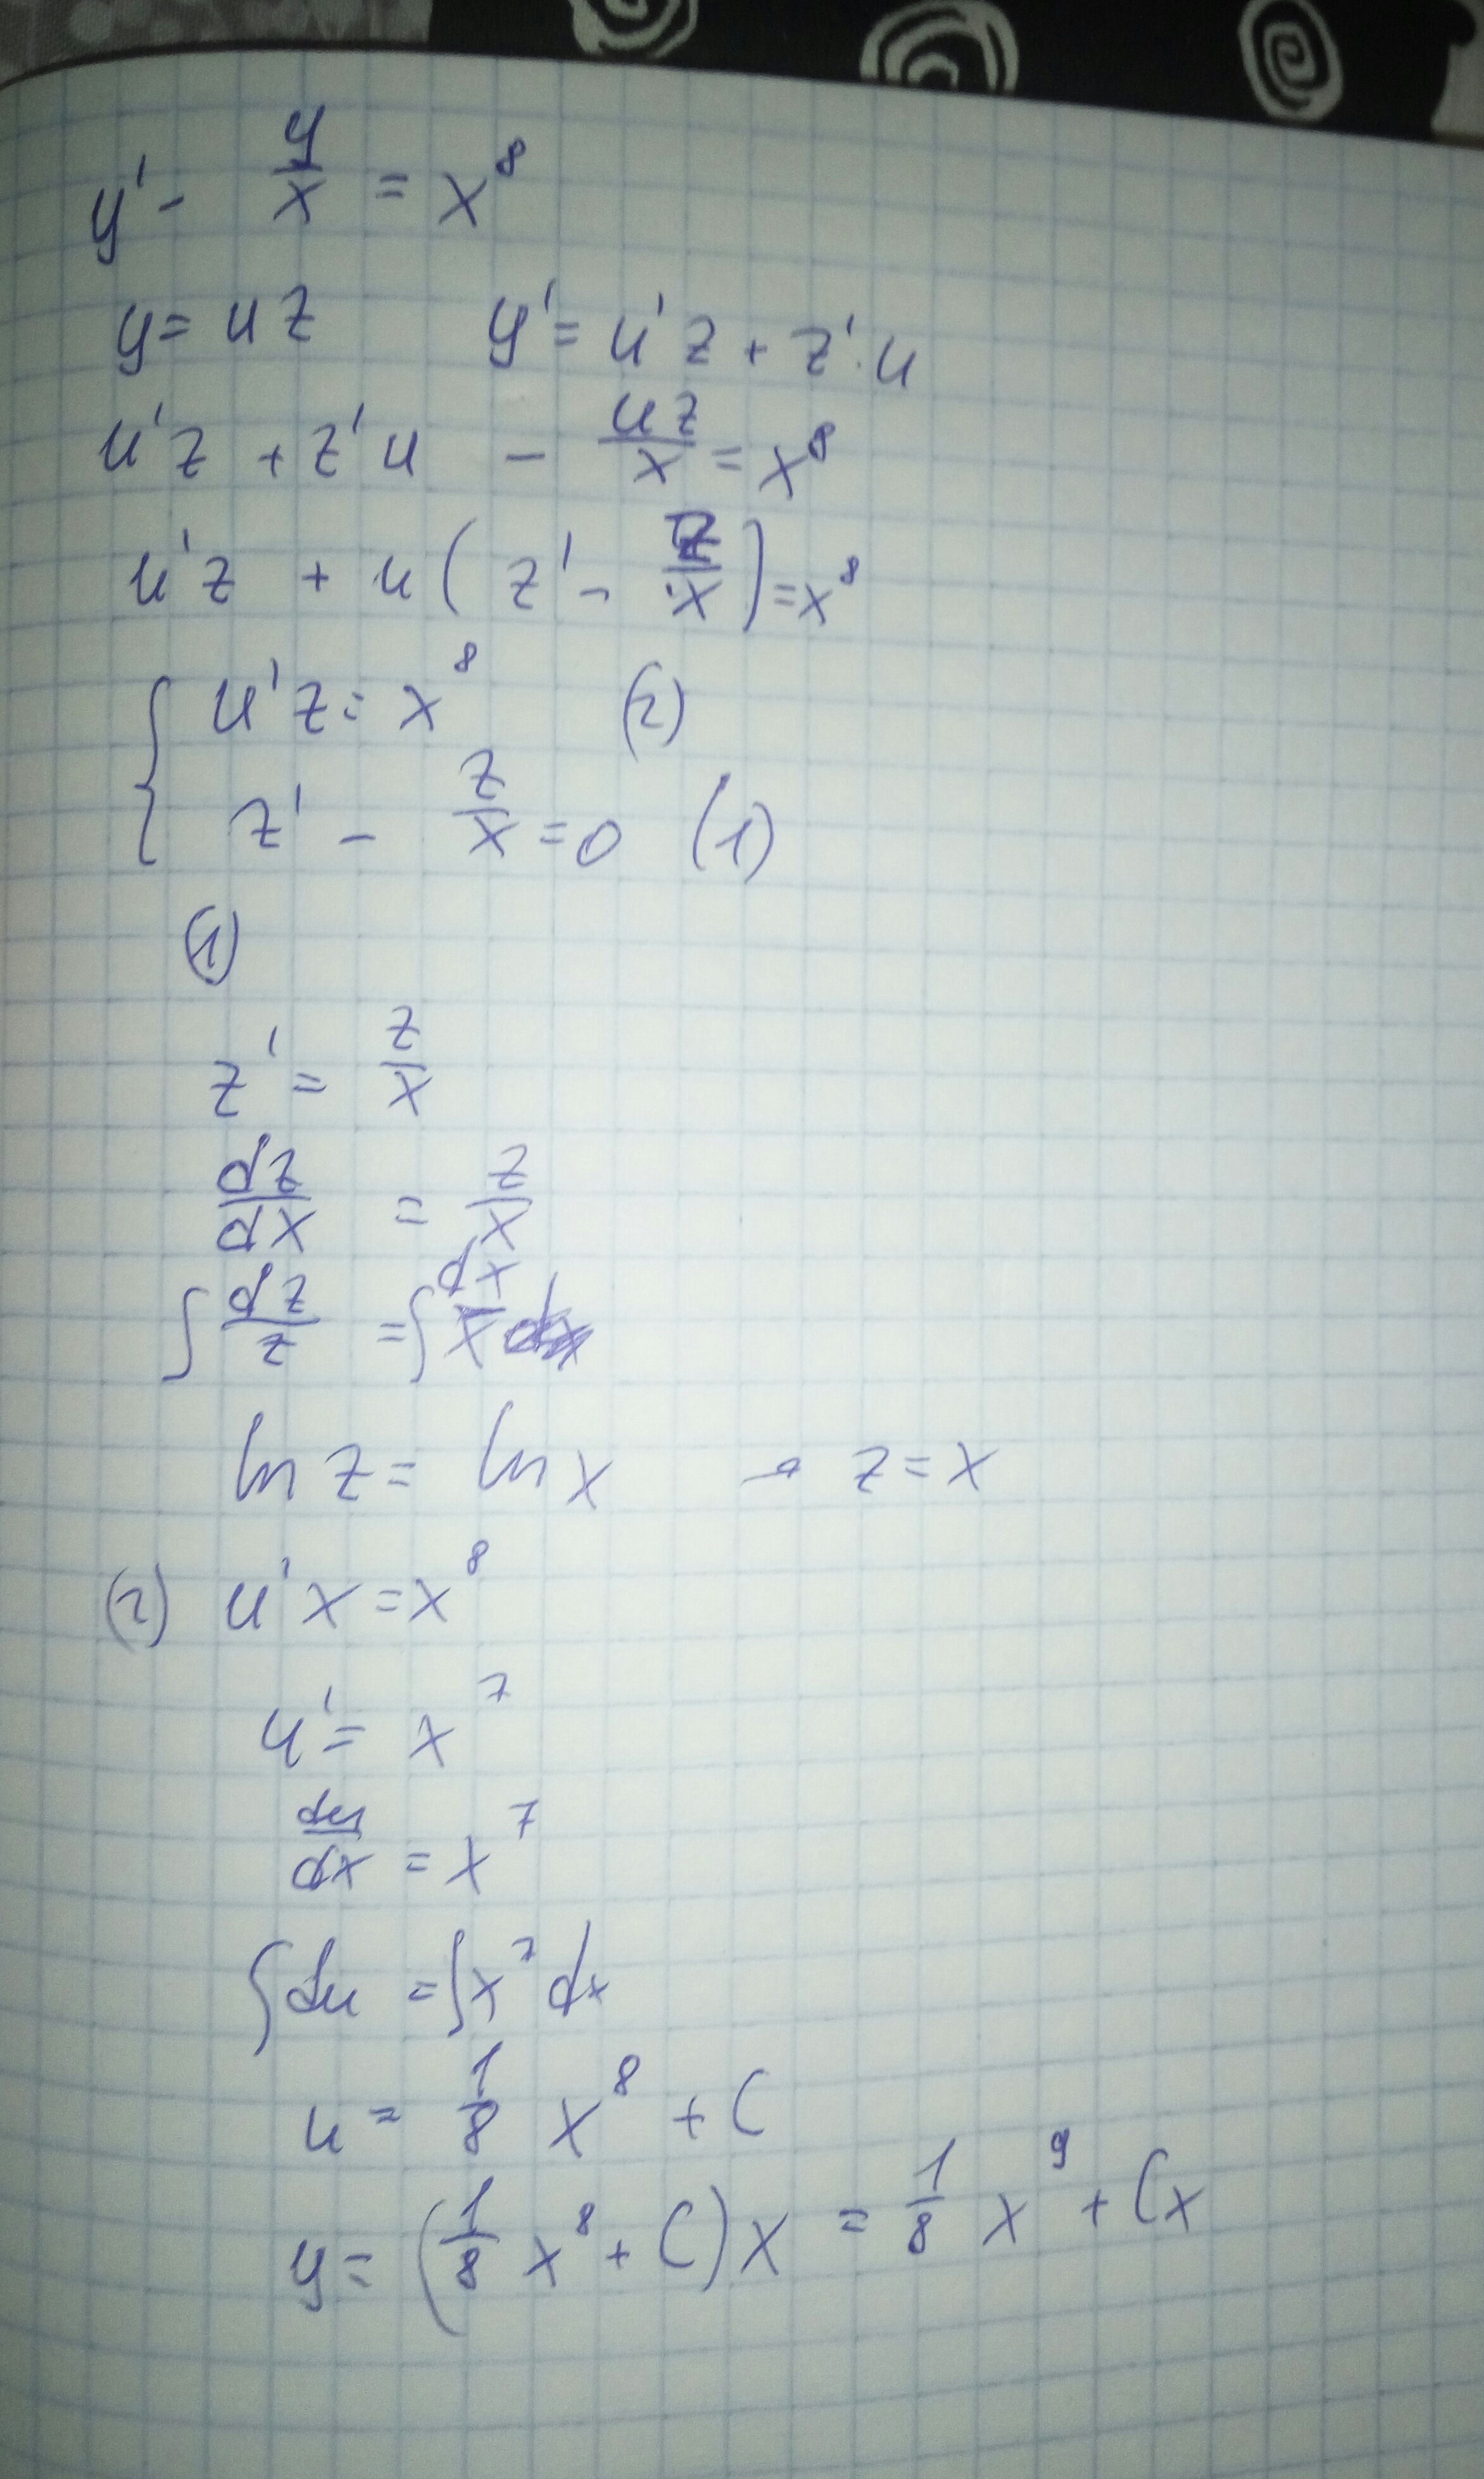 y' - y/x = x^8
y = uz y' = u'z + z'·u
u'z + z'u - uz/x = x^8
u'z + u(z' - z/x) = x^8
{ u'z = x^8 (2)
z' - z/x = 0 (1)
(1)
z' = z/x
dz/dx = z/x
∫ dz/z = ∫ dx/x
ln z = ln x → z = x
(2) u'x = x^8
u' = x^7
du/dx = x^7
∫ du = ∫ x^7 dx
u = 1/8 x^8 + C
y = (1/8 x^8 + C)x = 1/8 x^9 + Cx